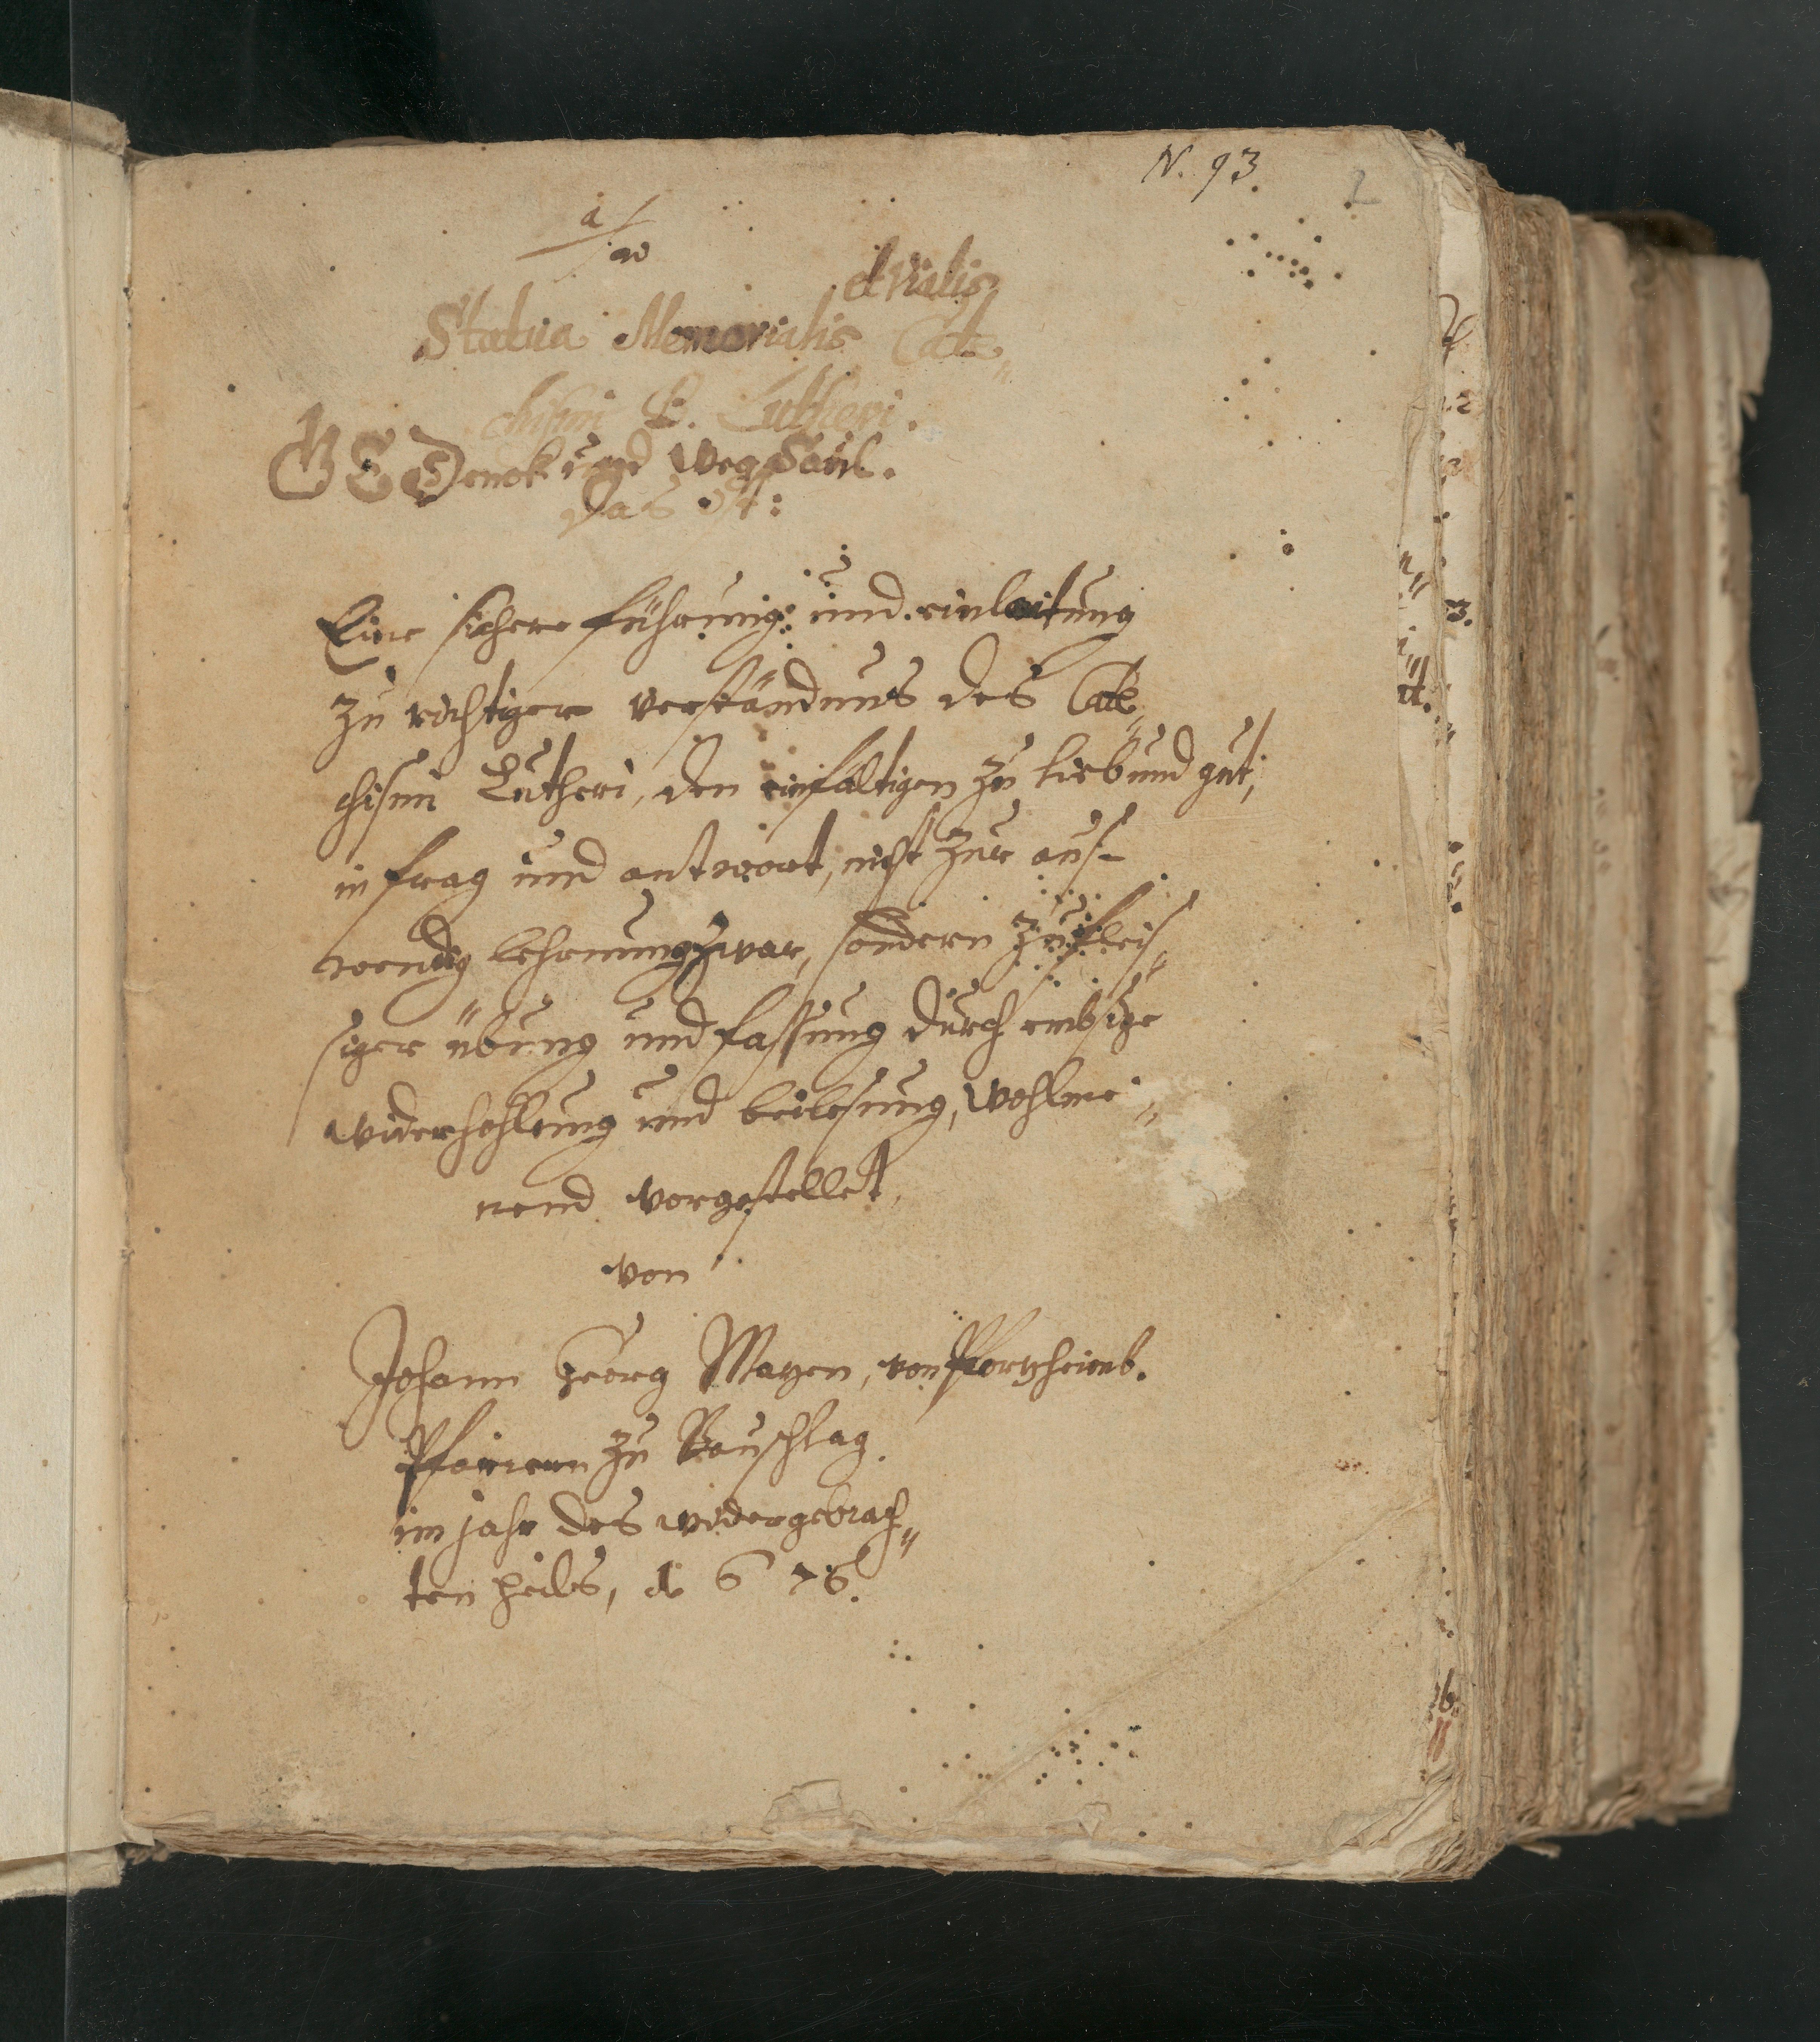 N. 93.
2
a/w
et vialis
Statua Memorialis Cate„
chismi L. Lutheri.
GEDenck und WegSäul.
Das ist:
Eine sichere führung und einleitung
zu richtigem verständnus des Cate„
chismi Lutheri, den einfältigen zu lieb und gut,
in frag und antwort, nicht zur aus-
wendig lehrnung zwar, sondern zu fleis„
siger übung und fassung durch embsige
widerhohlung und beilesung, wohlmei„
nend vorgestellet,
von
Johann Georg Mayen, von Pfortzheimb.
Pfarrern zu Bauschlag.
im jahr des widergebrach„
ten heils, 1676.